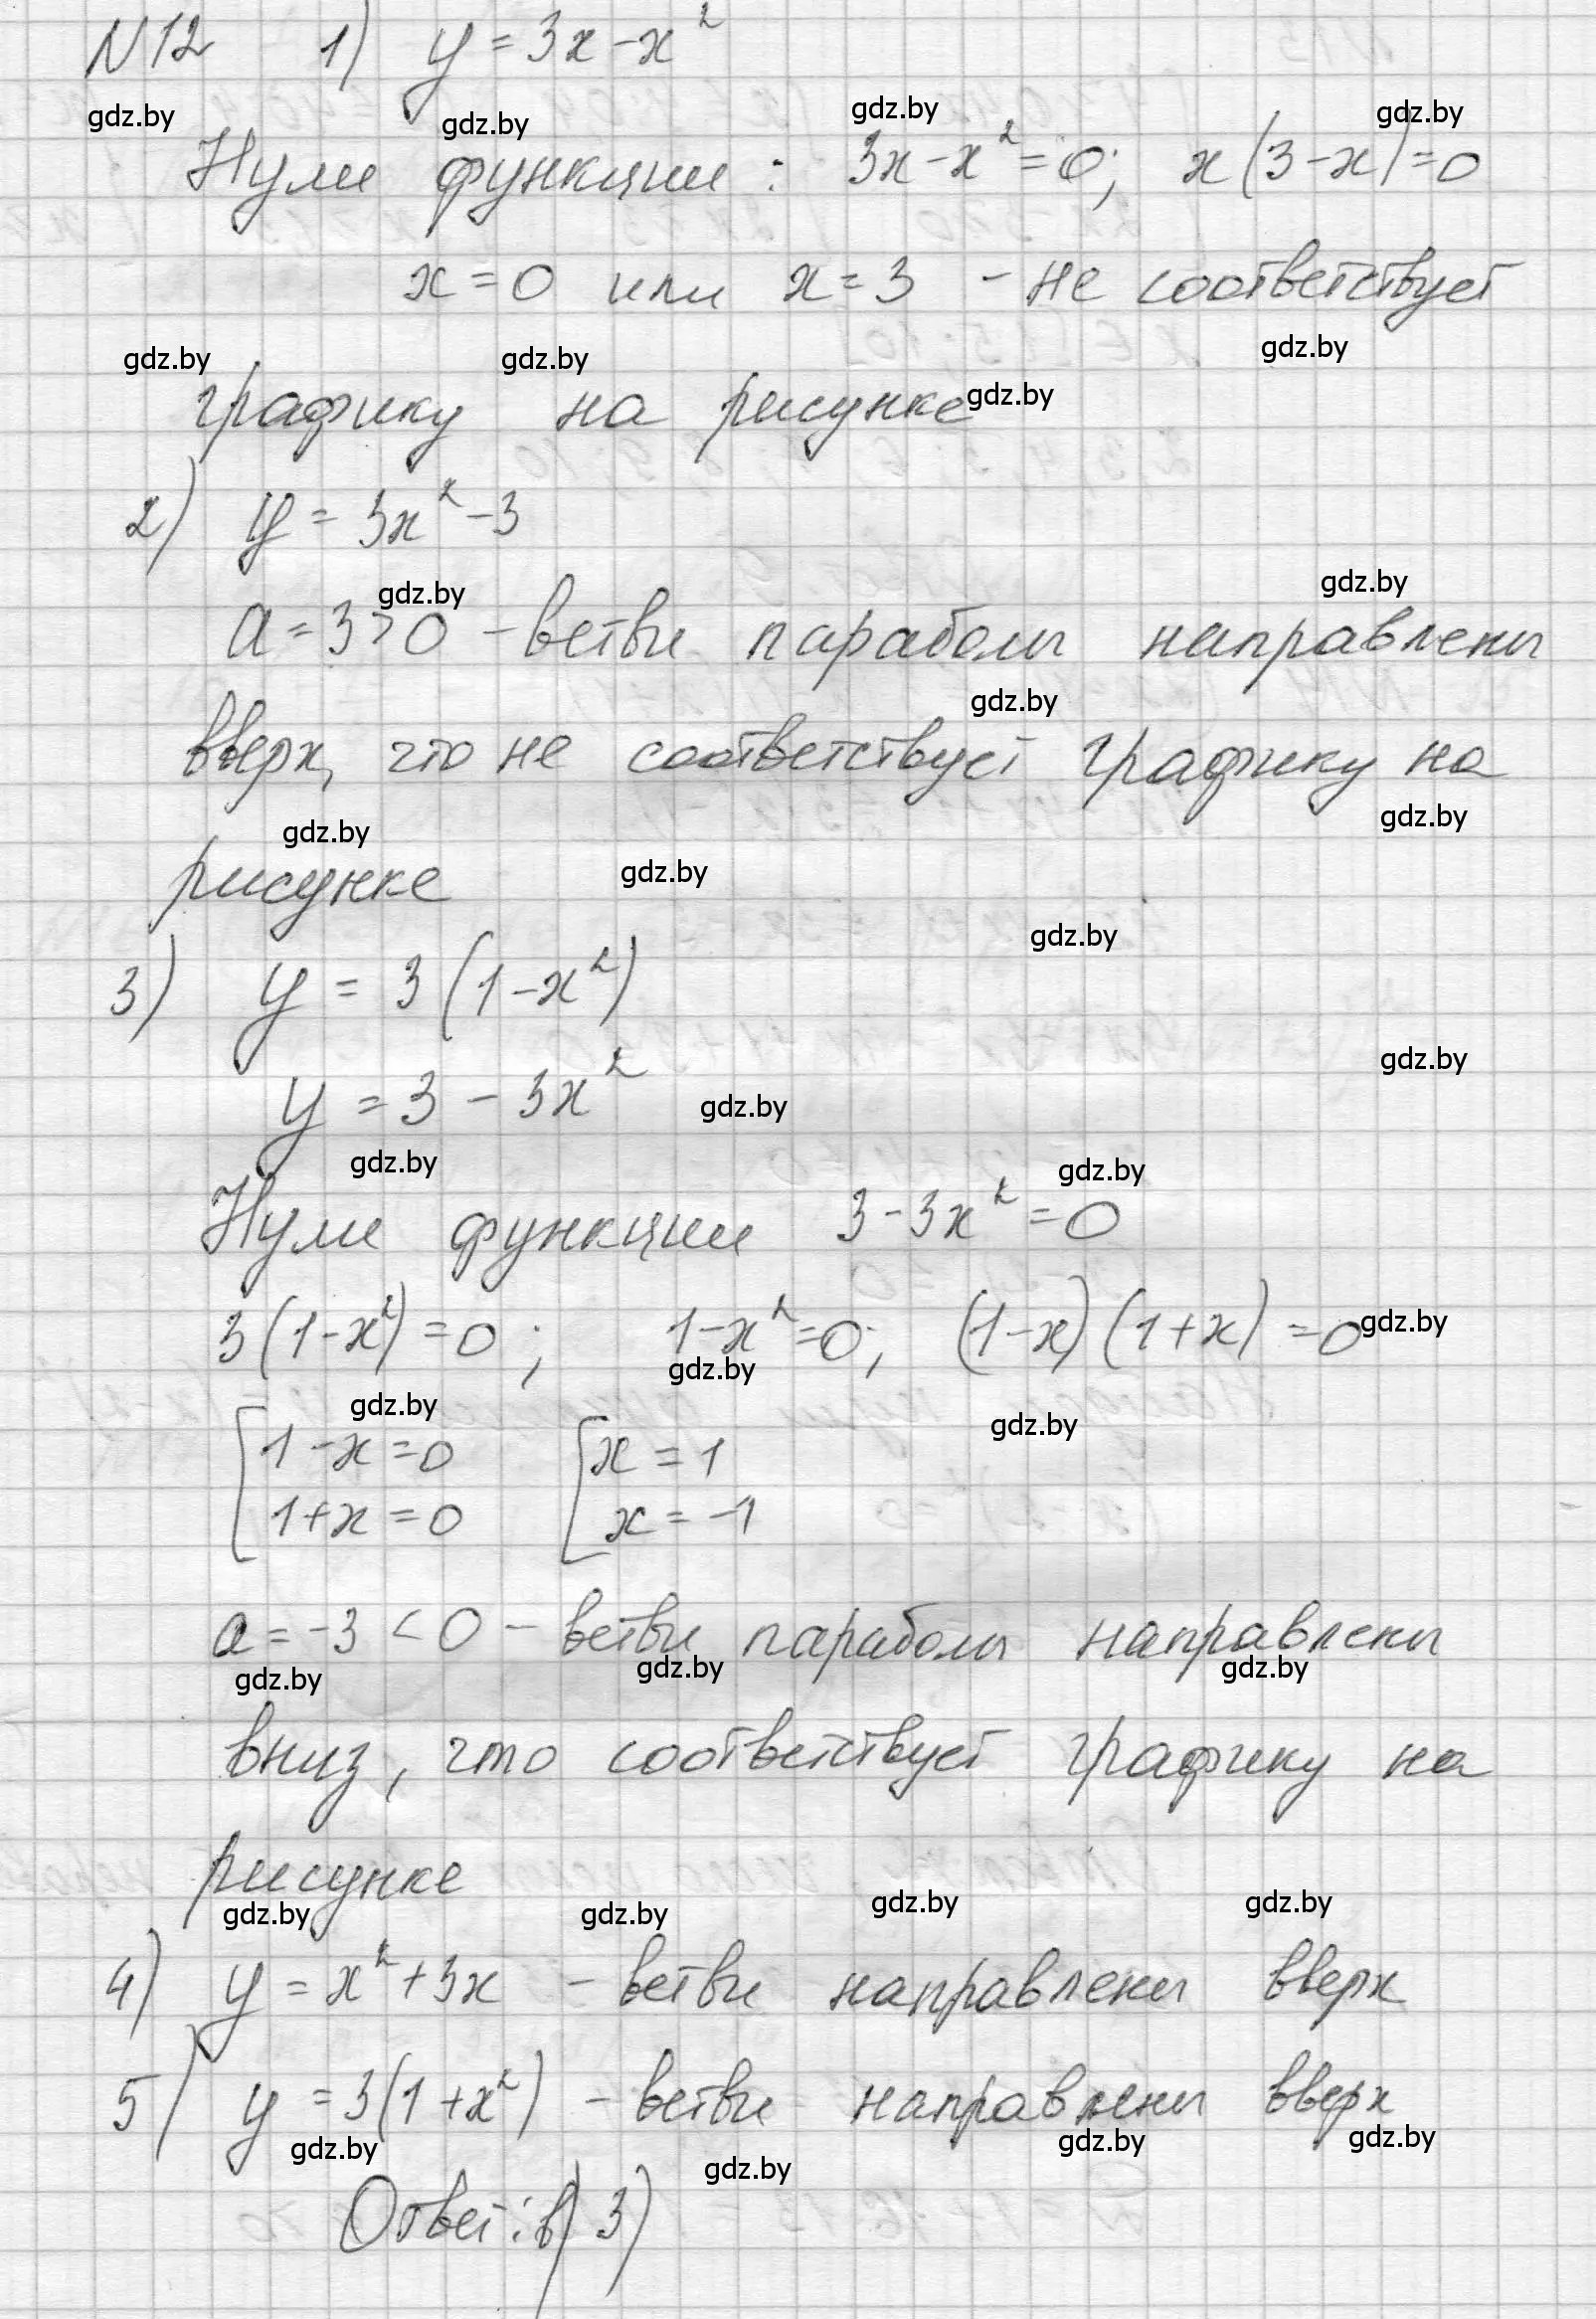 N12 1) y = 3x - x²
gdz.by gdz.by gdz.by gdz.by
Нули функции : 3x - x² = 0; x(3 - x) = 0
x = 0 или x = 3 - не соответствует
gdz.by gdz.by gdz.by
графику на рисунке gdz.by
2) y = 3x² - 3
gdz.by gdz.by
a = 3 > 0 - ветви параболы направлены
gdz.by
вверх, что не соответствует графику на
gdz.by gdz.by
рисунке gdz.by
gdz.by
3) y = 3(1 - x²)
gdz.by
y = 3 - 3x² gdz.by
gdz.by gdz.by
Нули функции 3 - 3x² = 0
3(1 - x²) = 0; 1 - x² = 0; (1 - x)(1 + x) = 0 gdz.by
gdz.by
gdz.by gdz.by
[1 - x = 0 [x = 1
1 + x = 0 x = -1
a = -3 < 0 - ветви параболы направлены
gdz.by gdz.by gdz.by
вниз, что соответствует графику на
рисунке
gdz.by gdz.by gdz.by gdz.by
4) y = x² + 3x - ветви направлены вверх
5) y = 3(1 + x²) - ветви направлены вверх
gdz.by gdz.by gdz.by
gdz.by
Ответ: в) 3)